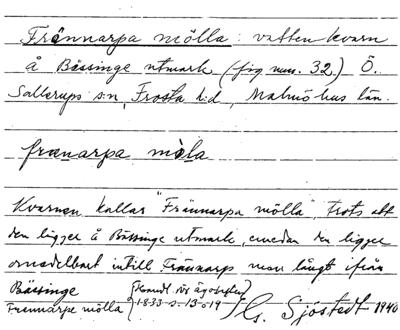 Frännarpa mölla: vattenkvarn
å Bässinge utmark (fig num. 32) Ö.
Sallerups s:n, Frosta h:d, Malmöhus län.
frænarpa møla
Kvarnen kallas "Frännarpa mölla", trots att
den ligger å Bässinge utmark, emedan den ligger
omedelbart intill Frännarp men långt ifrån
Bässinge
Frännarpa mölla
1833 s. 13 o 19
G. Sjöstedt 1940